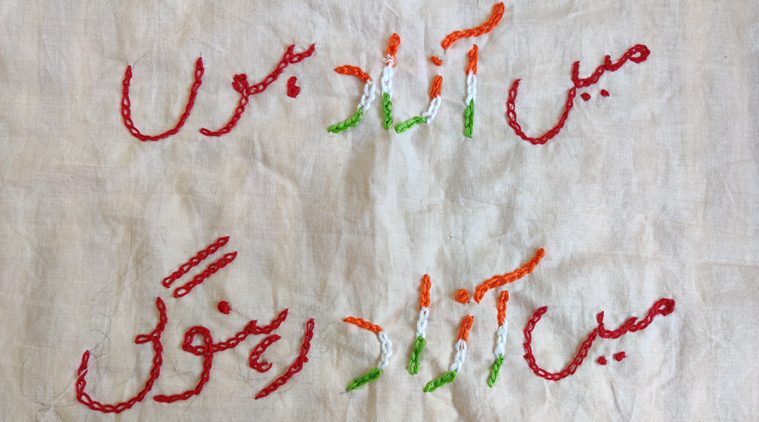 میں آزاد ہوں
میں آزاد رہونگی